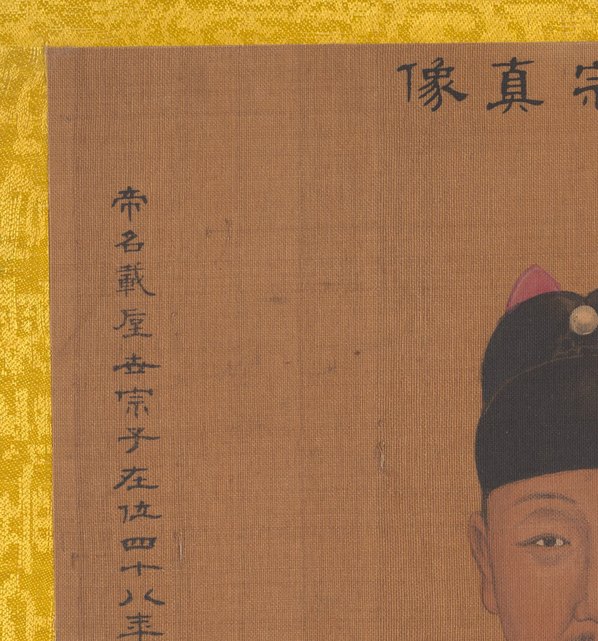 宗真像
帝名載垕世宗子在位四十八年